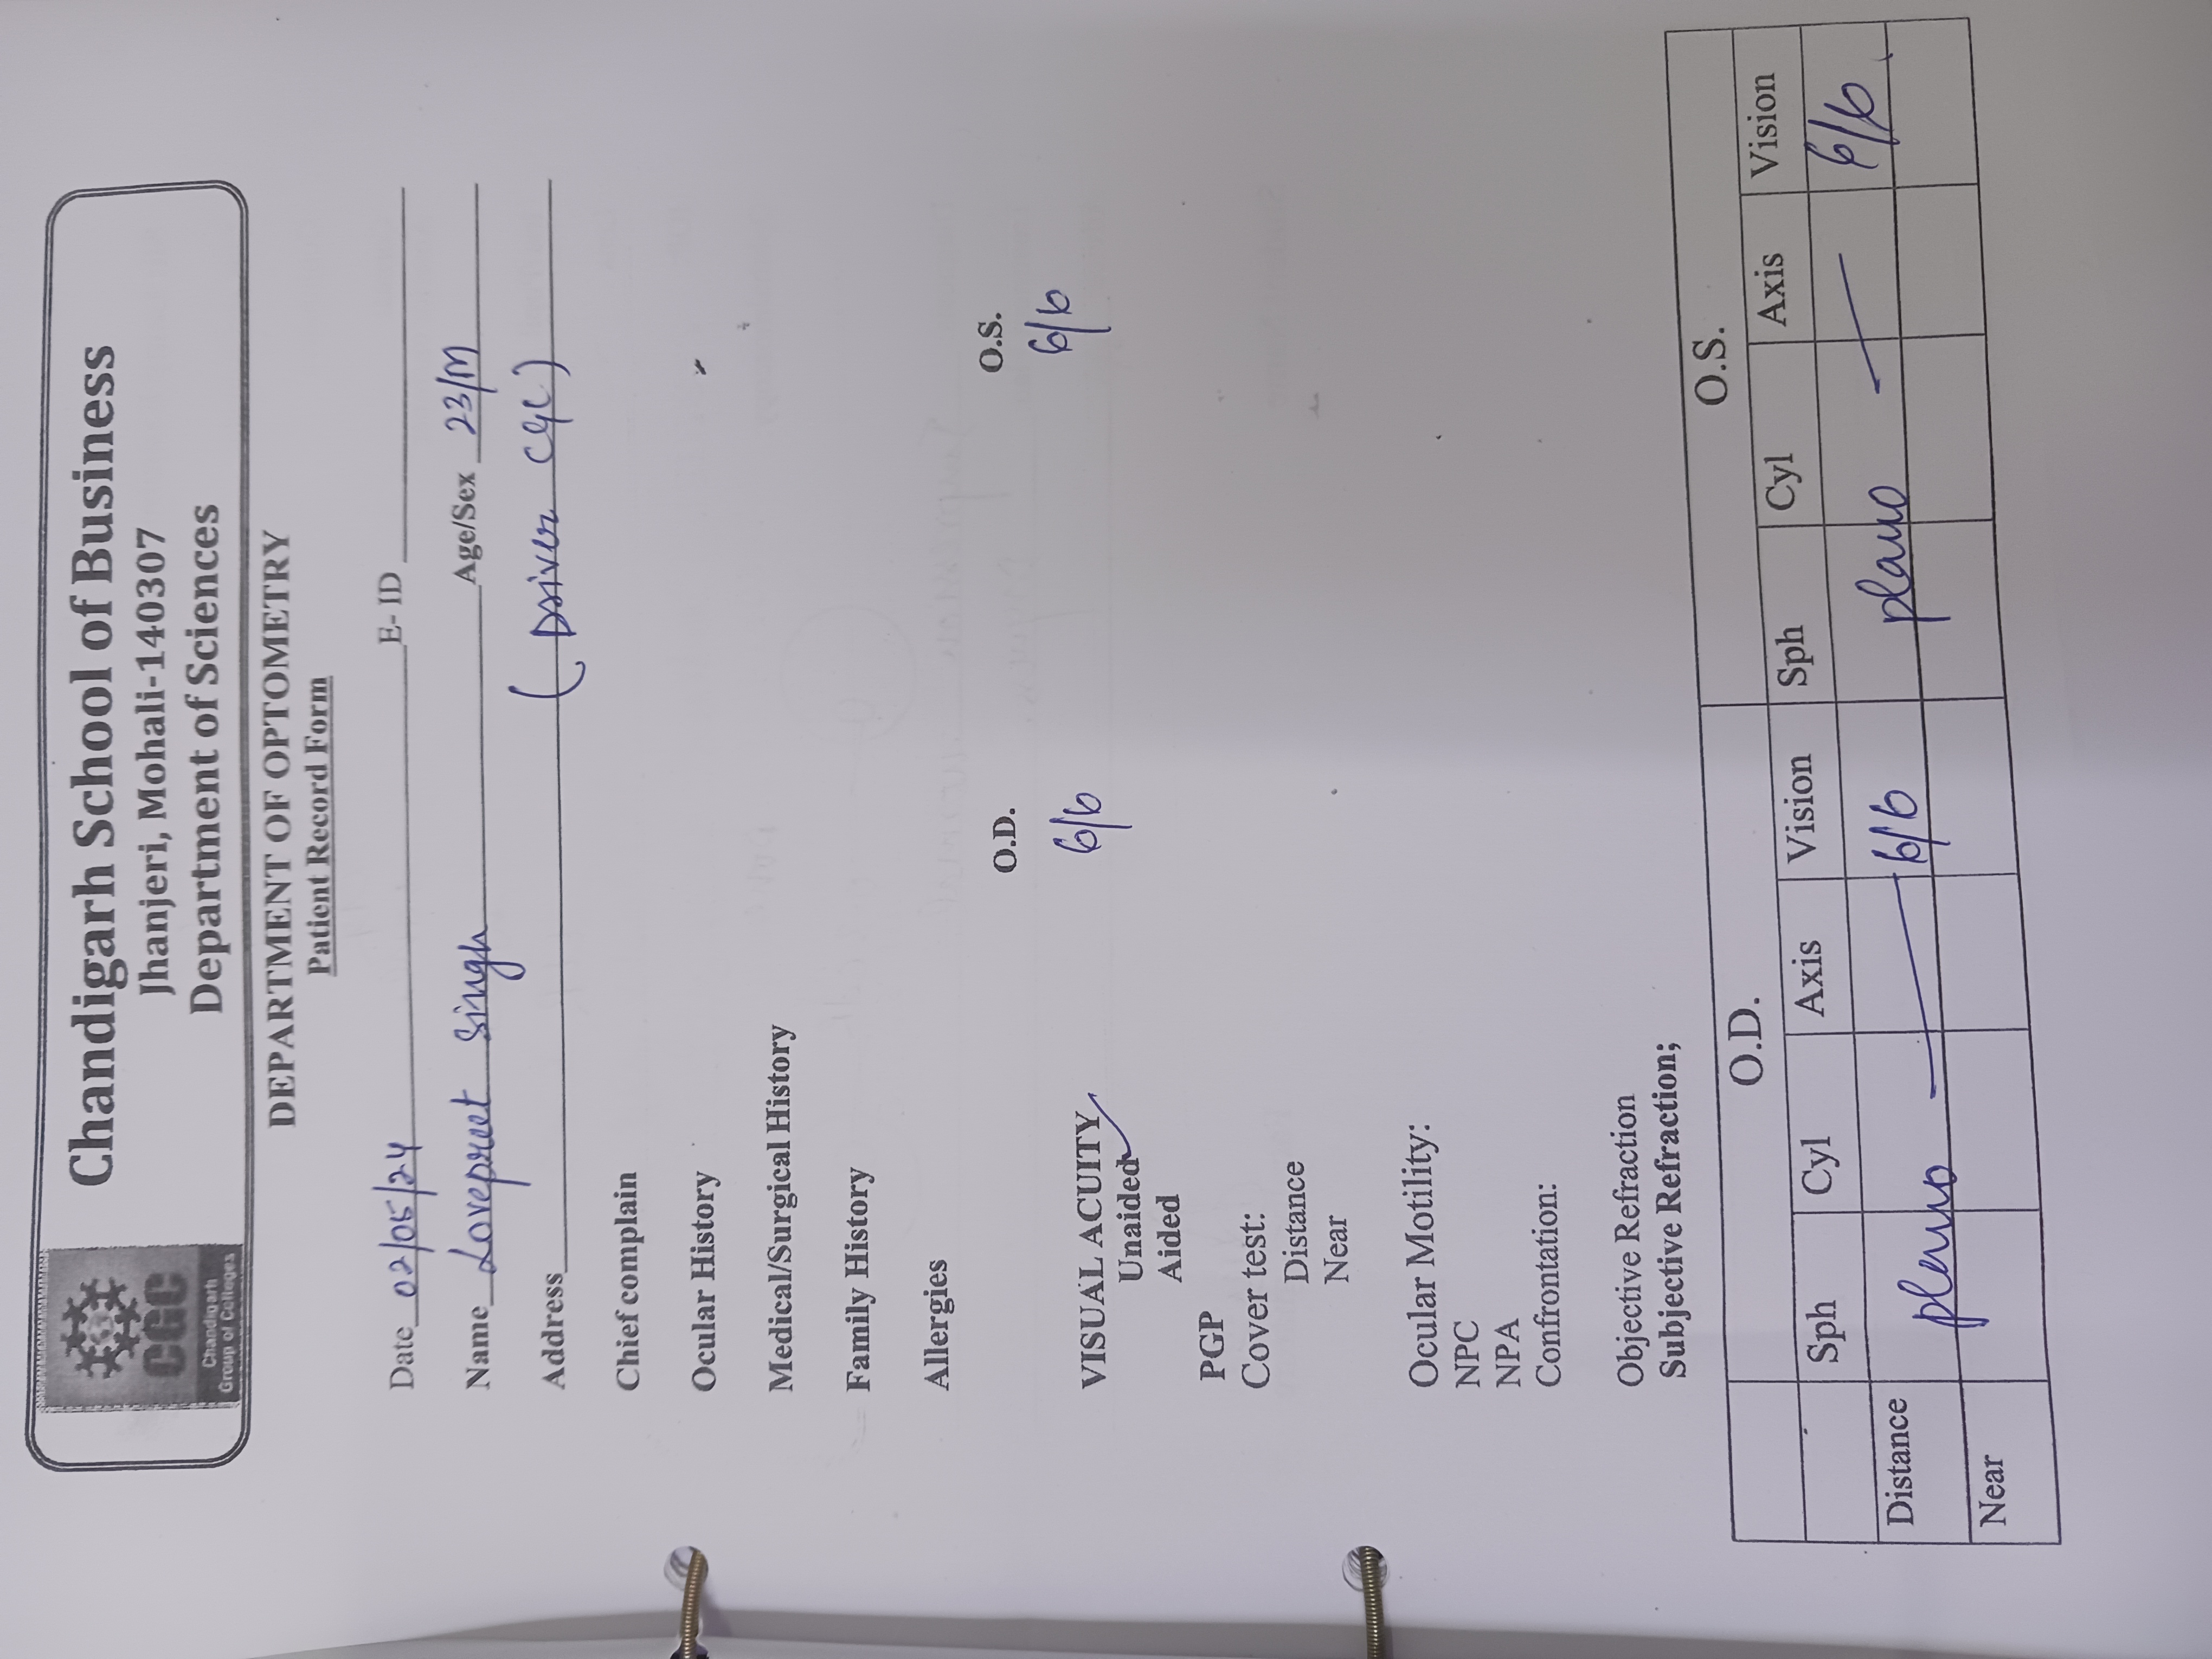 CGC
Chandigarh
Group of Colleges
Chandigarh School of Business
Jhanjeri, Mohali-140307
Department of Sciences
DEPARTMENT OF OPTOMETRY
Patient Record Form
Date 02/05/24 E- ID
Name Lovepreet Singh Age/Sex 23/M
Address (Driver CGC)
Chief complain
Ocular History
Medical/Surgical History
Family History
Allergies
O.D. O.S.
VISUAL ACUITY 6/6 6/6
Unaided
Aided
PGP
Cover test:
Distance
Near
Ocular Motility:
NPC
NPA
Confrontation:
Objective Refraction
Subjective Refraction;
O.D. O.S.
Sph Cyl Axis Vision Sph Cyl Axis Vision
Distance plano — 6/6 plano — 6/6
Near